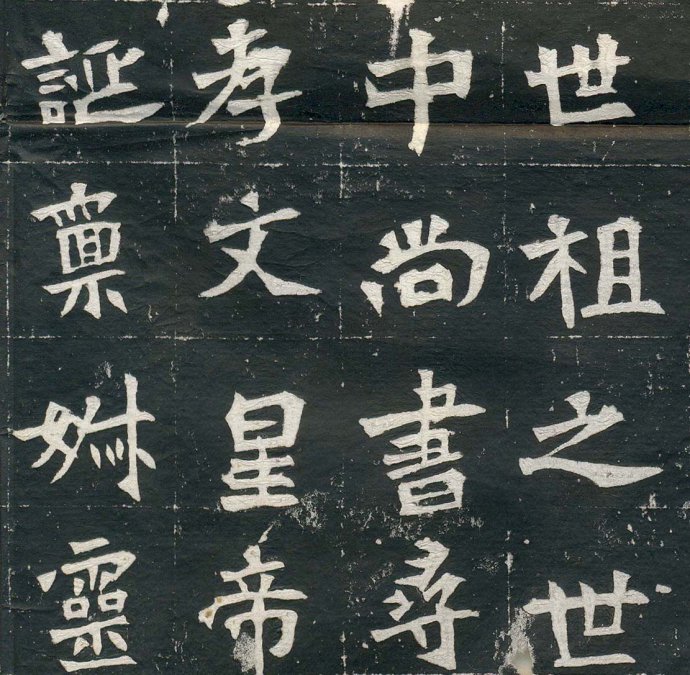 世祖之世
中尚書尋
孝文皇帝
誕禀靈